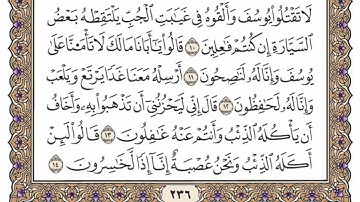 لَا تَقْتُلُوا۟ يُوسُفَ وَأَلْقُوهُ فِى غَيَـٰبَتِ ٱلْجُبِّ يَلْتَقِطْهُ بَعْضُ
ٱلسَّيَّارَةِ إِن كُنتُمْ فَـٰعِلِينَ ١٠ قَالُوا۟ يَـٰٓأَبَانَا مَالَكَ لَا تَأْمَ۫نَّا عَلَىٰ
يُوسُفَ وَإِنَّا لَهُۥ لَنَـٰصِحُونَ ١١ أَرْسِلْهُ مَعَنَا غَدًا يَرْتَعْ وَيَلْعَبْ
وَإِنَّا لَهُۥ لَحَـٰفِظُونَ ١٢ قَالَ إِنِّى لَيَحْزُنُنِىٓ أَن تَذْهَبُوا۟ بِهِۦ وَأَخَافُ
أَن يَأْكُلَهُ ٱلذِّئْبُ وَأَنتُمْ عَنْهُ غَـٰفِلُونَ ١٣ قَالُوا۟ لَئِنْ
أَكَلَهُ ٱلذِّئْبُ وَنَحْنُ عُصْبَةٌ إِنَّآ إِذًا لَّخَـٰسِرُونَ ١٤
٢٣٦